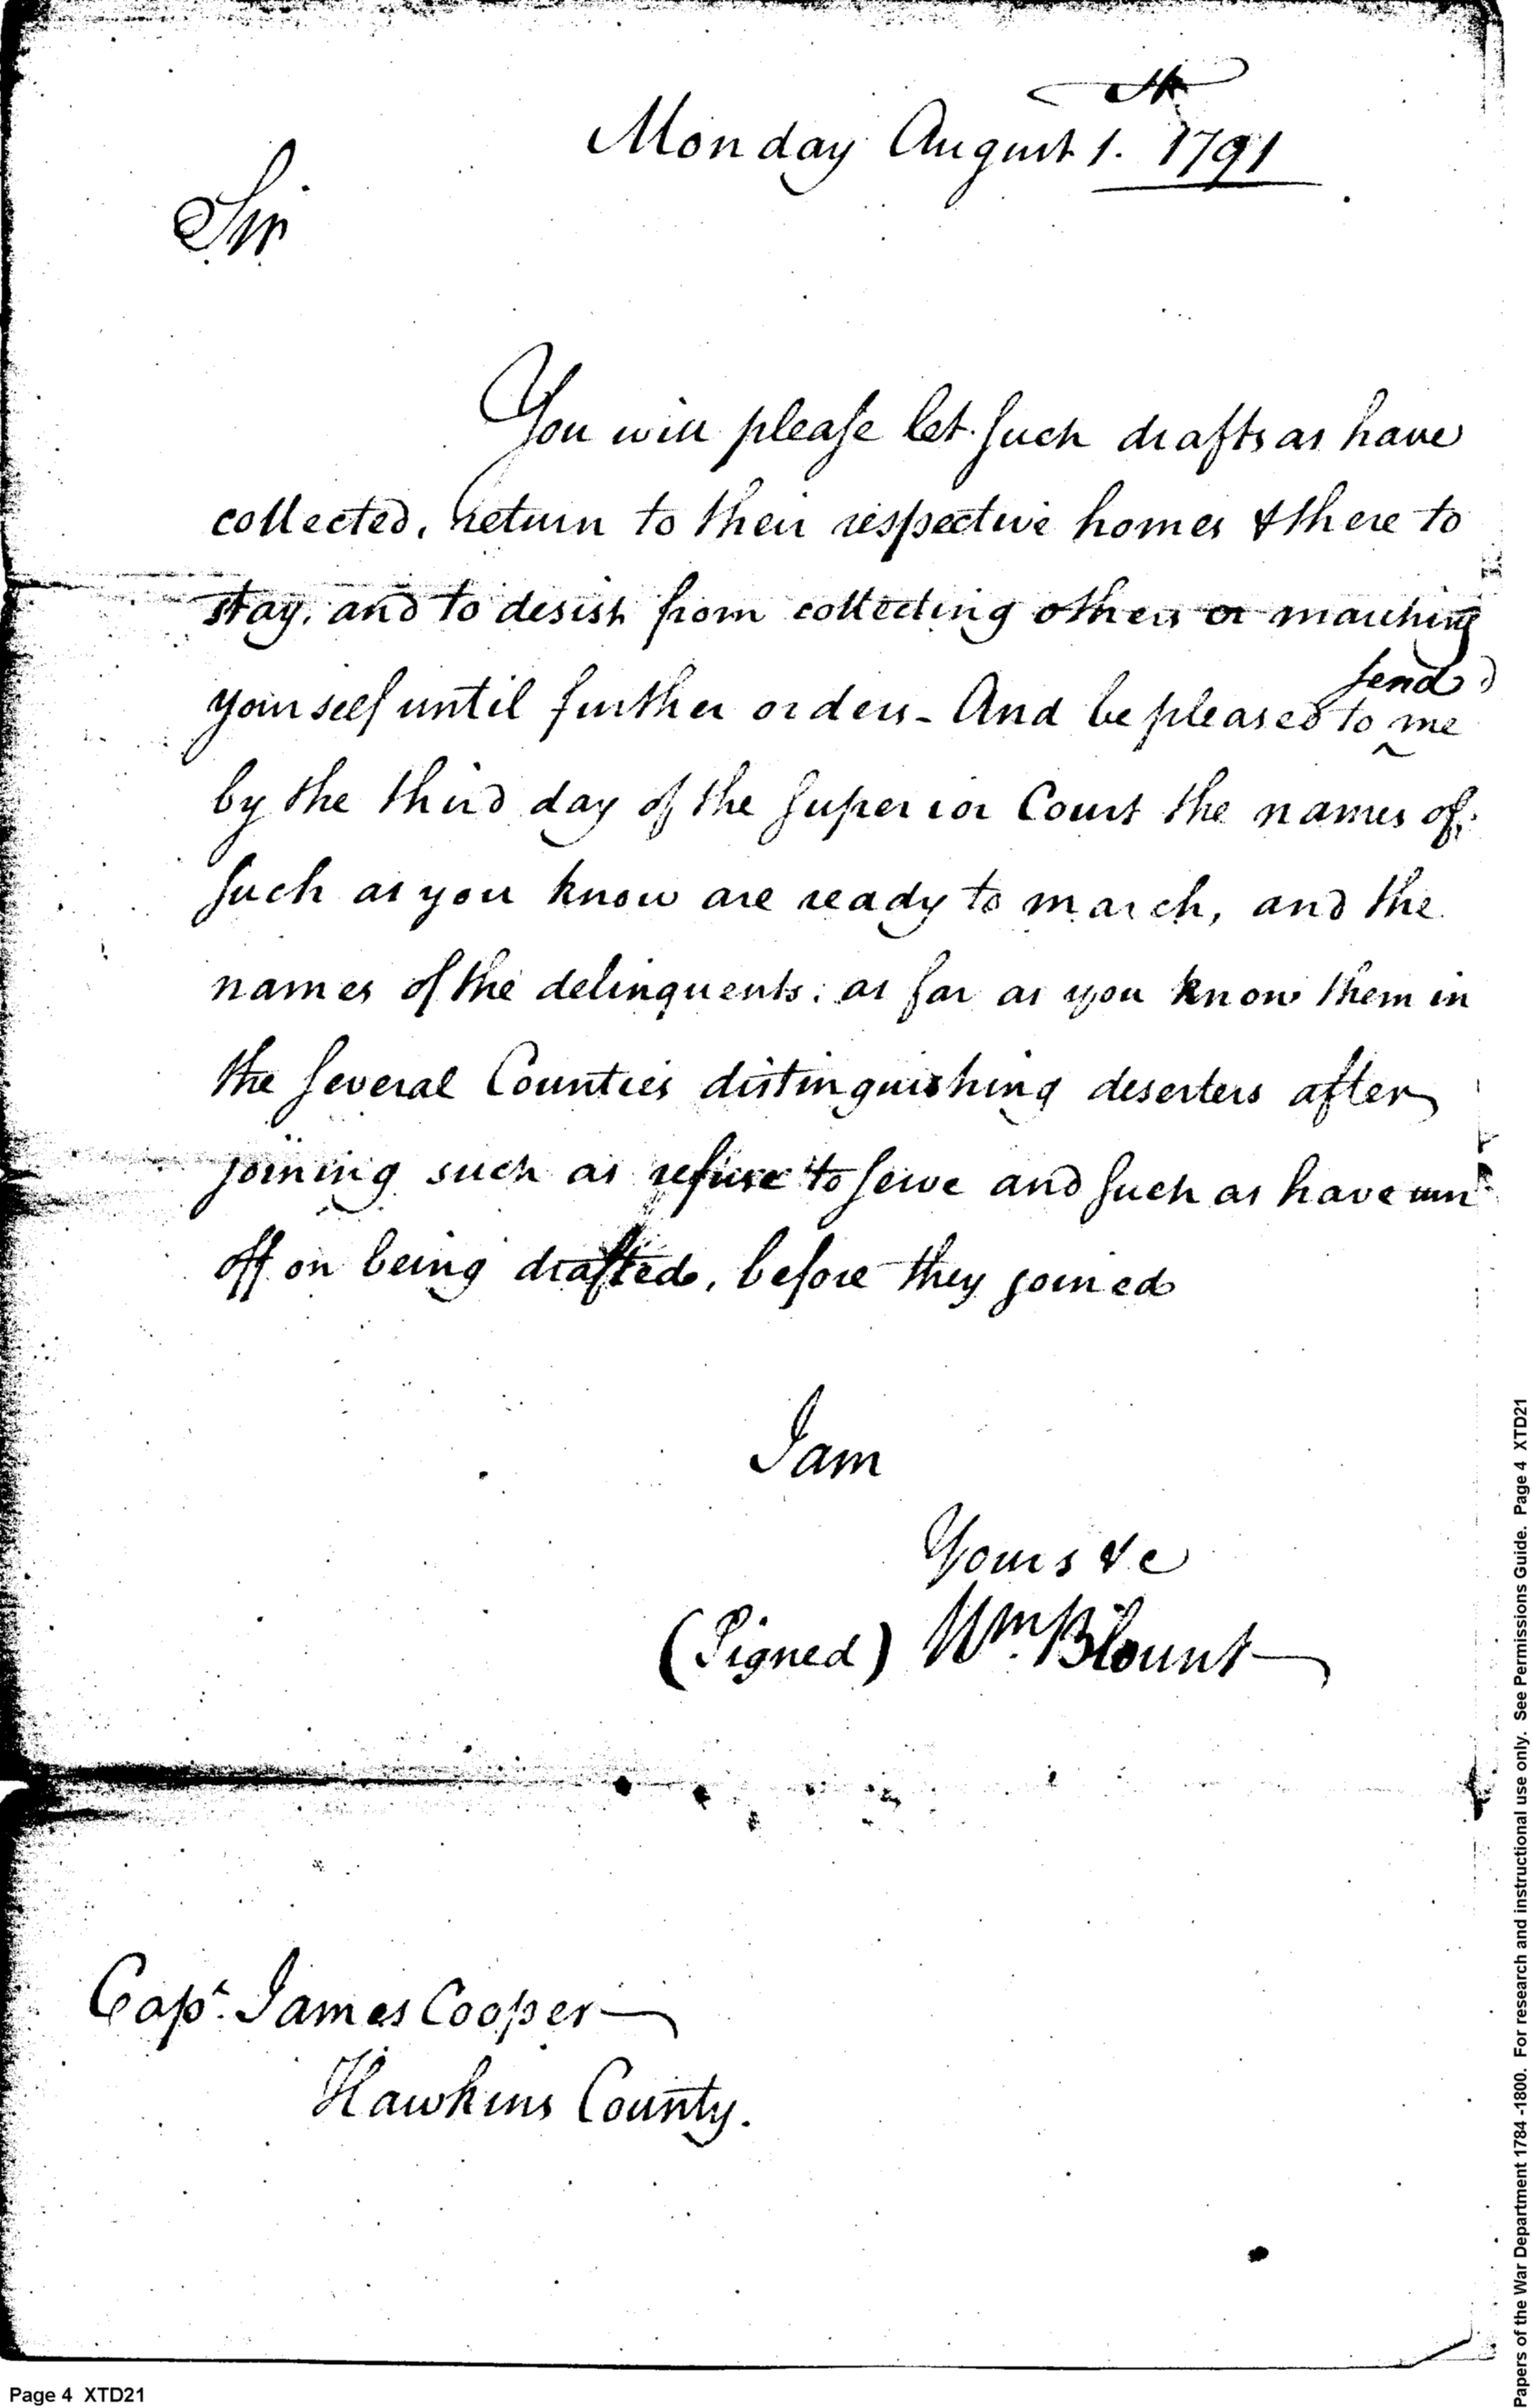 Monday August 1. 1791
Sir
You will please let such drafts as have
collected, return to their respective homes & there to
stay, and to desist from collecting others or marching
yourself until further orders - And be pleased to send me
by the third day of the Superior Court the names of
such as you know are ready to march, and the
names of the delinquents, as far as you know them in
the several Counties distinguishing deserters after
joining such as refuse to serve and such as have run
off on being drafted, before they joined
I am
Yours &c
(Signed) Wm. Blount
Capt. James Cooper
Hawkins County.
Page 4 XTD21
Papers of the War Department 1784 -1800. For research and instructional use only. See Permissions Guide. Page 4 XTD21